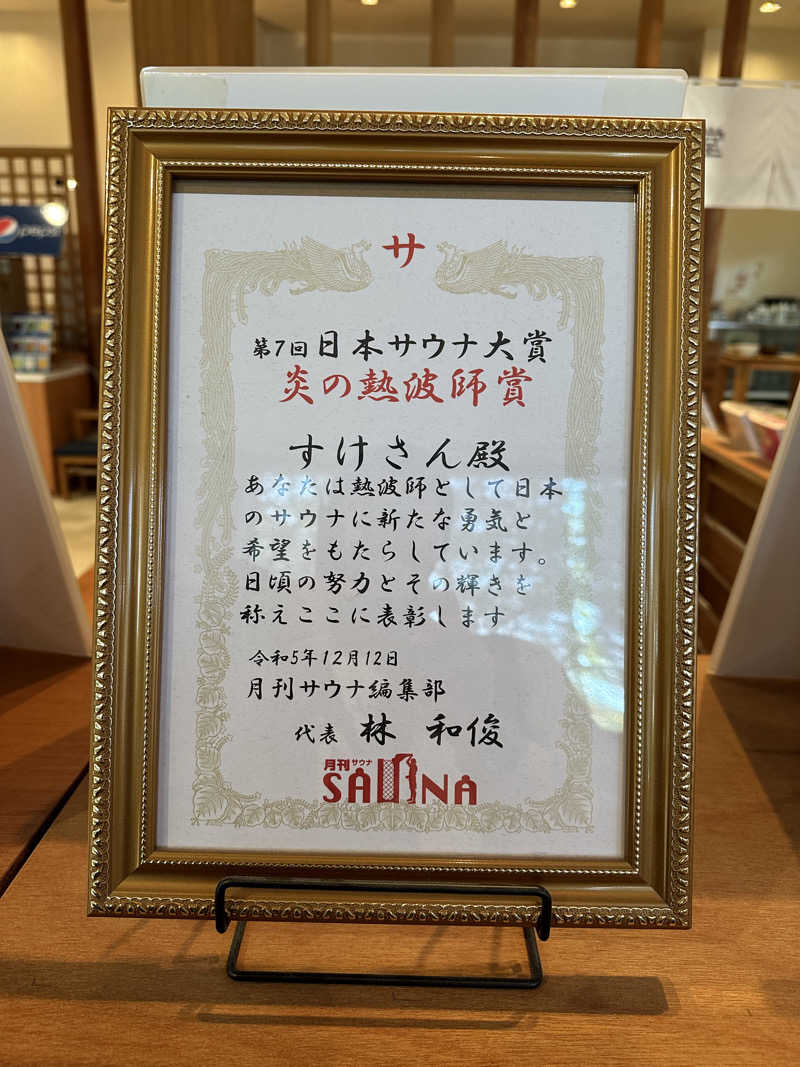 サ
第7回日本サウナ大賞
炎の熱波師賞
すけさん殿
あなたは熱波師として日本
のサウナに新たな勇気と
希望をもたらしています。
日頃の努力とその輝きを
称えここに表彰します
令和5年12月12日
月刊サウナ編集部
代表 林 和俊
月刊サウナ
SAUNA
pepsi